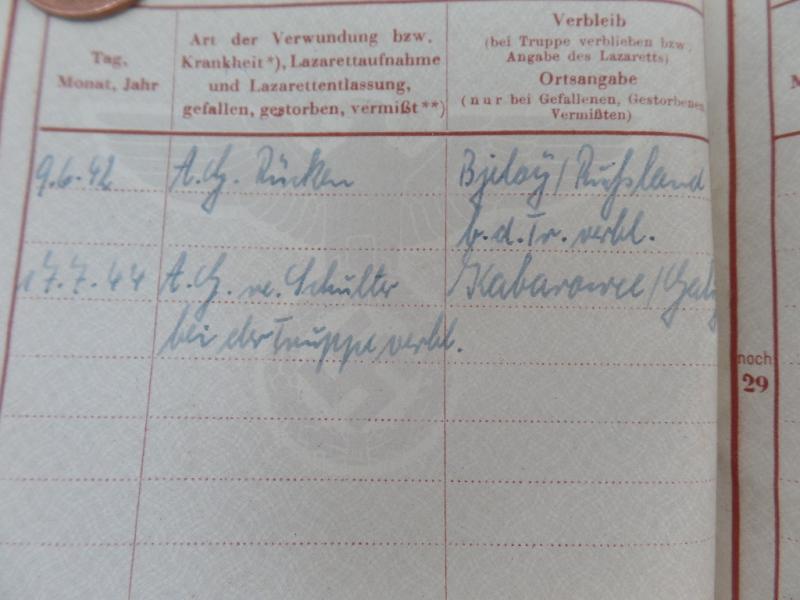 Tag,
Monat, Jahr
Art der Verwundung bzw.
Krankheit*), Lazarettaufnahme
und Lazarettentlassung,
gefallen, gestorben, vermißt**)
Verbleib
(bei Truppe verblieben bzw.
Angabe des Lazaretts)
Ortsangabe
(nur bei Gefallenen, Gestorbenen
Vermißten)
9.6.42 A.G. Rücken Bjeloÿ/Rußland
b.d.Tr. verbl.
17.7.44 A.G. re. Schulter Kabarowce/Galiz
bei der Truppe verbl.
noch
29